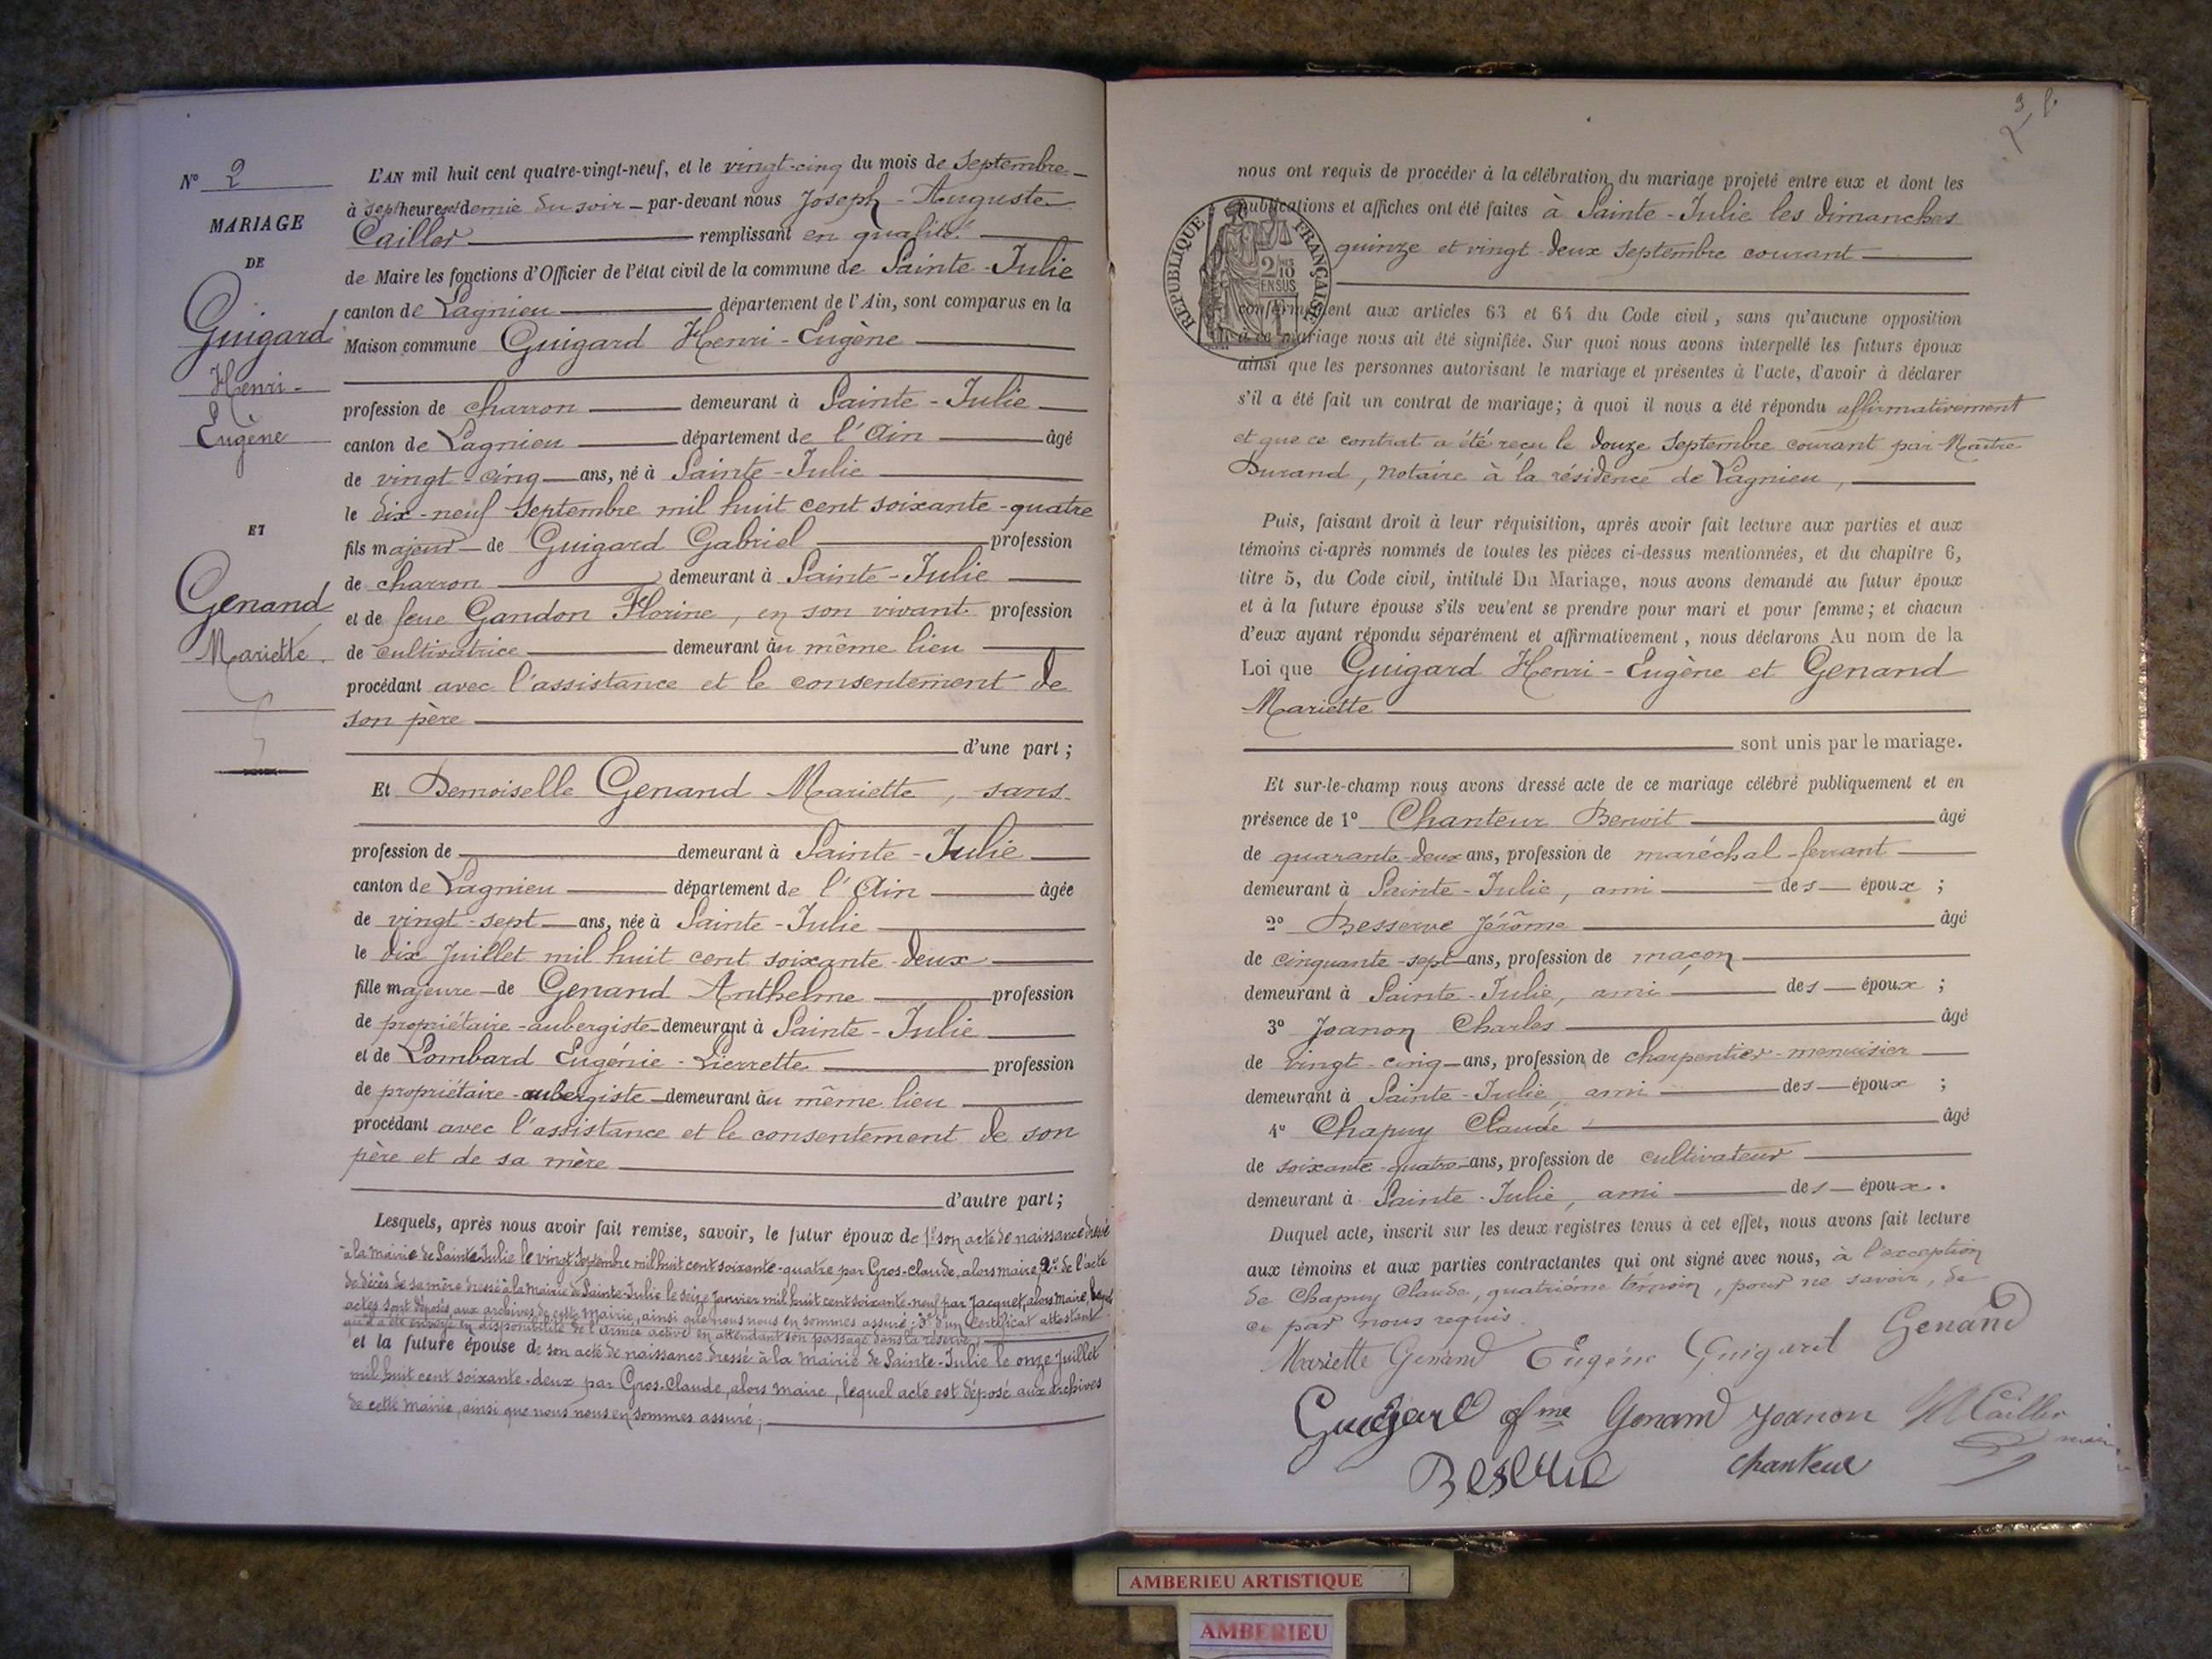 N° 2
MARIAGE
DE
Guigard
Henri-
Eugène
ET
Genand
Mariette
L'AN mil huit cent quatre-vingt-neuf, et le vingt-cinq du mois de Septembre
à sept heures et demie du soir par-devant nous Joseph-Auguste
Cailler remplissant en qualité
de Maire les fonctions d'Officier de l'état civil de la commune de Sainte-Julie
canton de Lagnieu département de l'Ain, sont comparus en la
Maison commune Guigard Henri-Eugène
profession de charron demeurant à Sainte-Julie
canton de Lagnieu département de l'Ain âgé
de vingt-cinq ans, né à Sainte-Julie
le dix-neuf Septembre mil huit cent soixante-quatre
fils majeur de Guigard Gabriel profession
de charron demeurant à Sainte-Julie
et de feue Gandon Florine, en son vivant profession
de cultivatrice demeurant au même lieu
procédant avec l'assistance et le consentement de
son père
d'une part ;
Et Demoiselle Genand Mariette, sans
profession de demeurant à Sainte-Julie
canton de Lagnieu département de l'Ain âgée
de vingt-sept ans, née à Sainte-Julie
le dix Juillet mil huit cent soixante-deux
fille majeure de Genand Anthelme profession
de propriétaire-aubergiste demeurant à Sainte-Julie
et de Lombard Eugénie-Pierrette profession
de propriétaire-aubergiste demeurant au même lieu
procédant avec l'assistance et le consentement de son
père et de sa mère
d'autre part ;
Lesquels, après nous avoir fait remise, savoir, le futur époux de 1° son acte de naissance dressé
à la Mairie de Sainte-Julie le vingt Septembre mil huit cent soixante-quatre par Gros-Claude, alors maire, 2° de l'acte
de décès de sa mère dressé à la Mairie de Sainte-Julie le seize Janvier mil huit cent soixante-neuf par Jacquet, alors Maire, lesquels
actes sont déposés aux archives de cette Mairie, ainsi que nous nous en sommes assuré ; 3° d'un certificat attestant
qu'il a été envoyé en disponibilité de l'armée active en attendant son passage dans la réserve,
et la future épouse de son acte de naissance dressé à la Mairie de Sainte-Julie le onze Juillet
mil huit cent soixante-deux par Gros-Claude, alors Maire, lequel acte est déposé aux archives
de cette Mairie, ainsi que nous nous en sommes assuré ;
3
nous ont requis de procéder à la célébration du mariage projeté entre eux et dont les
publications et affiches ont été faites à Sainte-Julie les dimanches
quinze et vingt-deux Septembre courant
RÉPUBLIQUE FRANÇAISE
conformément aux articles 63 et 64 du Code civil, sans qu'aucune opposition
à ce mariage nous ait été signifiée. Sur quoi nous avons interpellé les futurs époux
ainsi que les personnes autorisant le mariage et présentes à l'acte, d'avoir à déclarer
s'il a été fait un contrat de mariage ; à quoi il nous a été répondu affirmativement
et que ce contrat a été reçu le douze Septembre courant par Maître
Durand, notaire à la résidence de Lagnieu,
Puis, faisant droit à leur réquisition, après avoir fait lecture aux parties et aux
témoins ci-après nommés de toutes les pièces ci-dessus mentionnées, et du chapitre 6,
titre 5, du Code civil, intitulé Du Mariage, nous avons demandé au futur époux
et à la future épouse s'ils veulent se prendre pour mari et pour femme ; et chacun
d'eux ayant répondu séparément et affirmativement, nous déclarons Au nom de la
Loi que Guigard Henri-Eugène et Genand
Mariette
sont unis par le mariage.
Et sur-le-champ nous avons dressé acte de ce mariage célébré publiquement et en
présence de 1° Chanteur Benoit âgé
de quarante-deux ans, profession de maréchal-ferrant
demeurant à Sainte-Julie, ami des époux ;
2° Besserve Jérôme âgé
de cinquante-sept ans, profession de maçon
demeurant à Sainte-Julie, ami des époux ;
3° Joanon Charles âgé
de vingt-cinq ans, profession de charpentier-menuisier
demeurant à Sainte-Julie, ami des époux ;
4° Chapuy Claude âgé
de soixante-quatre ans, profession de cultivateur
demeurant à Sainte-Julie, ami des époux.
Duquel acte, inscrit sur les deux registres tenus à cet effet, nous avons fait lecture
aux témoins et aux parties contractantes qui ont signé avec nous, à l'exception
de Chapuy Claude, quatrième témoin, pour ne savoir, de
ce par nous requis.
Mariette Genand Eugène Guigard Genand
Guigard fme Genand Joanon Cailler
Beserve chanteur
AMBERIEU ARTISTIQUE
AMBERIEU